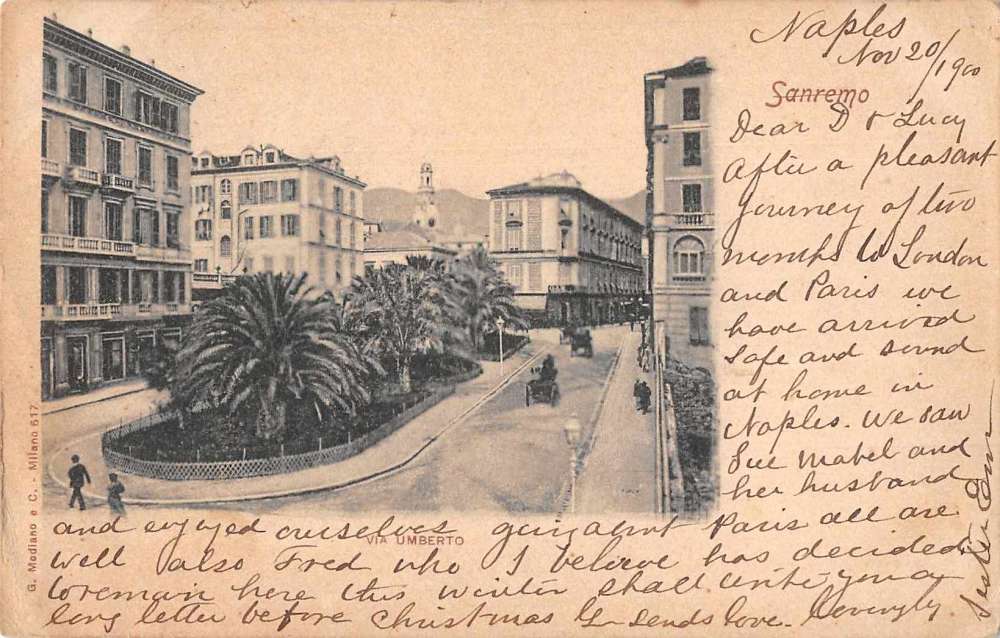 Naples
Nov 20/1900
Sanremo
Dear D & Lucy
After a pleasant
journey of two
months to London
and Paris we
have arrived
safe and sound
at home in
Naples. We saw
Sue Mabel and
her husband
and enjoyed ourselves going about Paris all are
well also Fred who I believe has decided
to remain here this winter shall write you a
long letter before Christmas G sends love. Lovingly
Sister Em
VIA UMBERTO
G. Modiano e C. - Milano 617